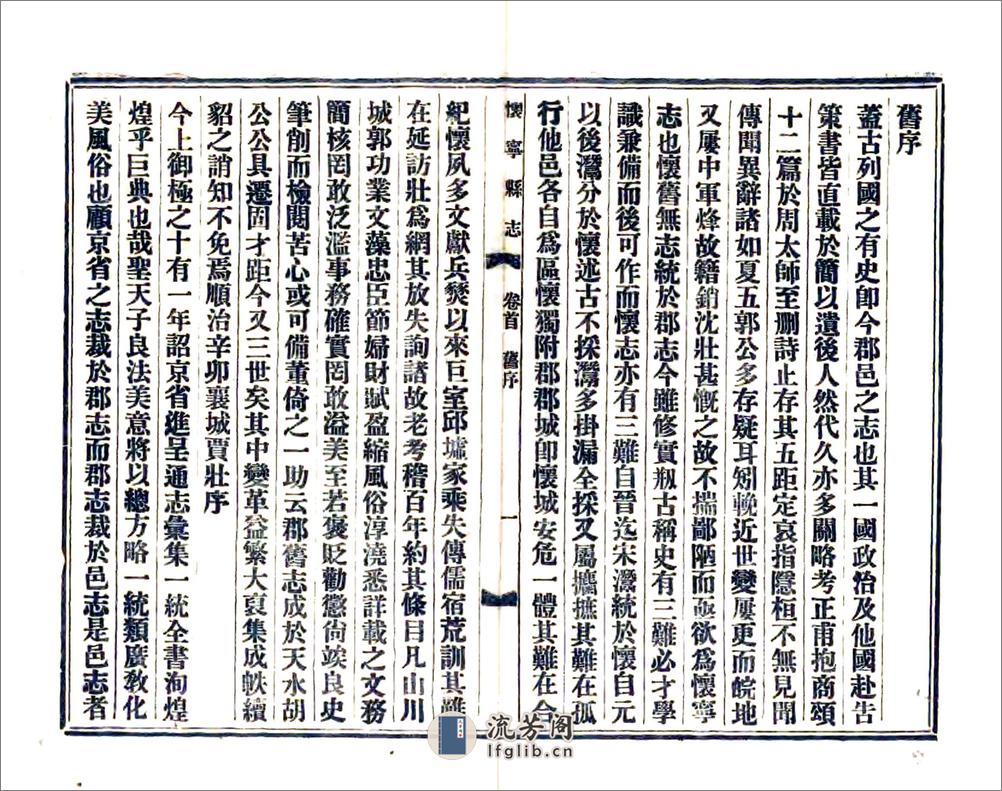 舊序
蓋古列國之有史卽今郡邑之志也其一國政治及他國赴告
策書皆直載於簡以遺後人然代久亦多關略考正甫抱商頌
十二篇於周太師至刪詩止存其五距定哀指隱桓不無見聞
傳聞異辭諸如夏五郭公多存疑耳矧輓近世變屢更而皖地
又屢中軍烽故籍銷沈壯甚慨之故不揣鄙陋而亟欲爲懷寧
志也懷舊無志統於郡志今雖修實剏古稱史有三難必才學
識兼備而後可作而懷志亦有三難自晉迄宋灊統於懷自元
以後灊分於懷述古不採灊多掛漏全採又屬攟摭其難在孤
行他邑各自爲區懷獨附郡郡城卽懷城安危一體其難在合
懷寧縣志 卷首 舊序 一
紀懷夙多文獻兵燹以來巨室邱墟家乘失傳儒宿荒訓其難
在延訪壯爲網其放失詢諸故老考稽百年約其條目凡山川
城郭功業文藻忠臣節婦財賦盈縮風俗淳澆悉詳載之文務
簡核罔敢泛濫事務確實罔敢溢美至若褒貶勸懲尙竢良史
筆削而檢閱苦心或可備董倚之一助云郡舊志成於天水胡
公公具遷固才距今又三世矣其中變革益繁大裒集成帙續
貂之誚知不免焉順治辛卯襄城賈壯序
今上御極之十有一年詔京省進呈通志彙集一統全書洵煌
煌乎巨典也哉聖天子良法美意將以總方略一統類廣敎化
美風俗也顧京省之志裁於郡志而郡志裁於邑志是邑志者
流芳阁
lfglib.cn